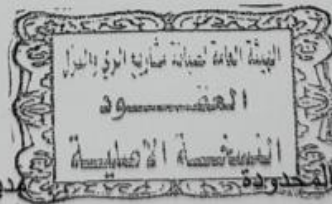 الهيئة العامة لصيانة مشاريع الري والبزل
العقود
النسخة الأصلية
المحدودة